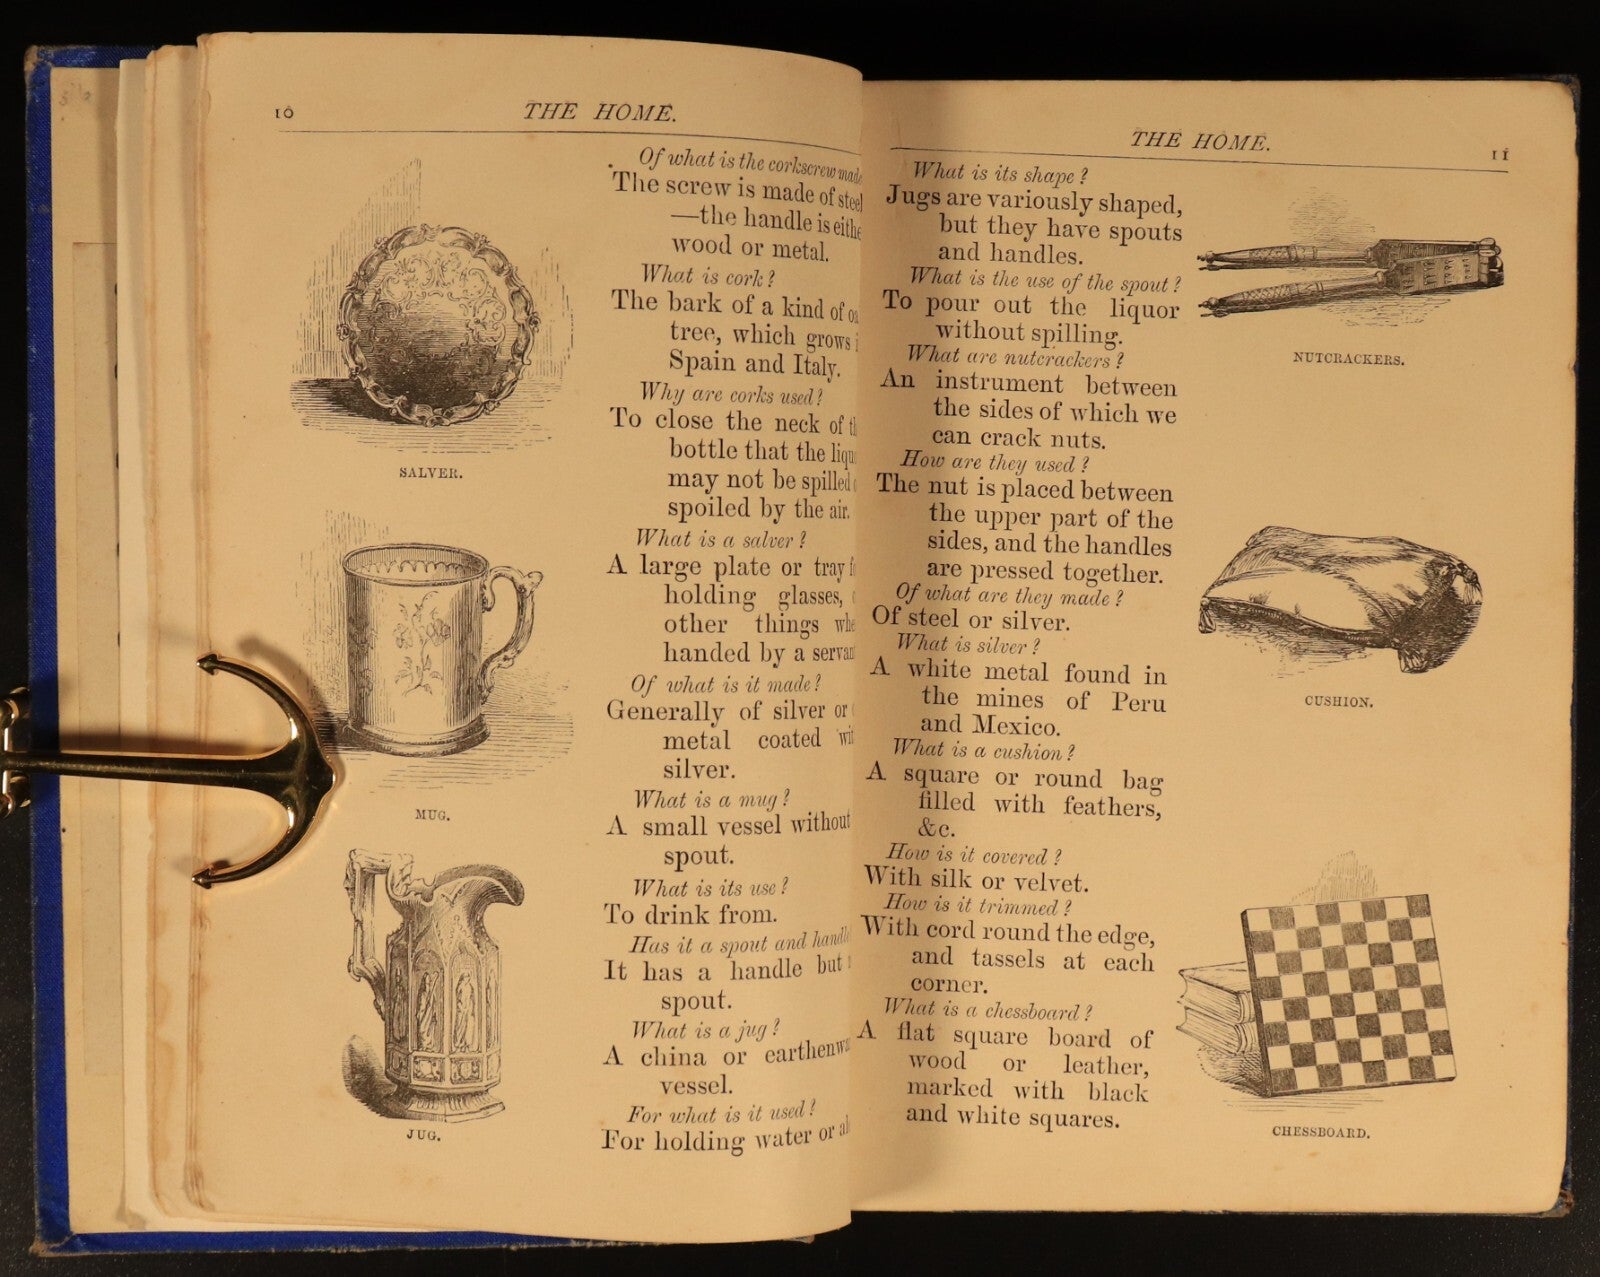 10
THE HOME.
SALVER.
MUG.
JUG.
Of what is the corkscrew made
The screw is made of steel
—the handle is eithe
wood or metal.
What is cork?
The bark of a kind of oa
tree, which grows i
Spain and Italy.
Why are corks used?
To close the neck of th
bottle that the liqu
may not be spilled
spoiled by the air.
What is a salver?
A large plate or tray f
holding glasses,
other things whe
handed by a servan
Of what is it made?
Generally of silver or
metal coated wit
silver.
What is a mug?
A small vessel without
spout.
What is its use?
To drink from.
Has it a spout and handle
It has a handle but
spout.
What is a jug?
A china or earthenwa
vessel.
For what is it used?
For holding water or al
THE HOME.
11
What is its shape?
Jugs are variously shaped,
but they have spouts
and handles.
What is the use of the spout?
To pour out the liquor
without spilling.
What are nutcrackers?
An instrument between
the sides of which we
can crack nuts.
How are they used?
The nut is placed between
the upper part of the
sides, and the handles
are pressed together.
Of what are they made?
Of steel or silver.
What is silver?
A white metal found in
the mines of Peru
and Mexico.
What is a cushion?
A square or round bag
filled with feathers,
&c.
How is it covered?
With silk or velvet.
How is it trimmed?
With cord round the edge,
and tassels at each
corner.
What is a chessboard?
A flat square board of
wood or leather,
marked with black
and white squares.
NUTCRACKERS.
CUSHION.
CHESSBOARD.